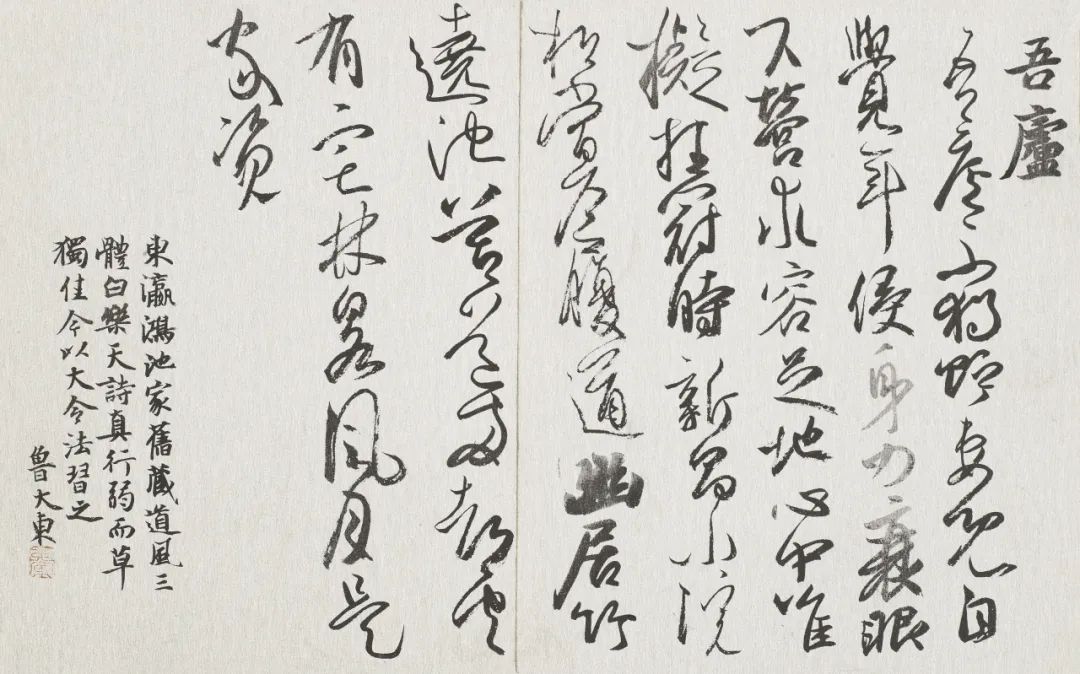 吾廬
吾廬不獨貯妻兒自
覺年侵身力衰眼
下營求容足地心中准
擬挂冠時新昌小院
松當戶履道幽居竹
遶池莫道兩都空
有宅林泉風月是
家資
東瀛鴻池家舊藏道風三
體白樂天詩真行弱而草
獨佳今以大令法習之
魯大東